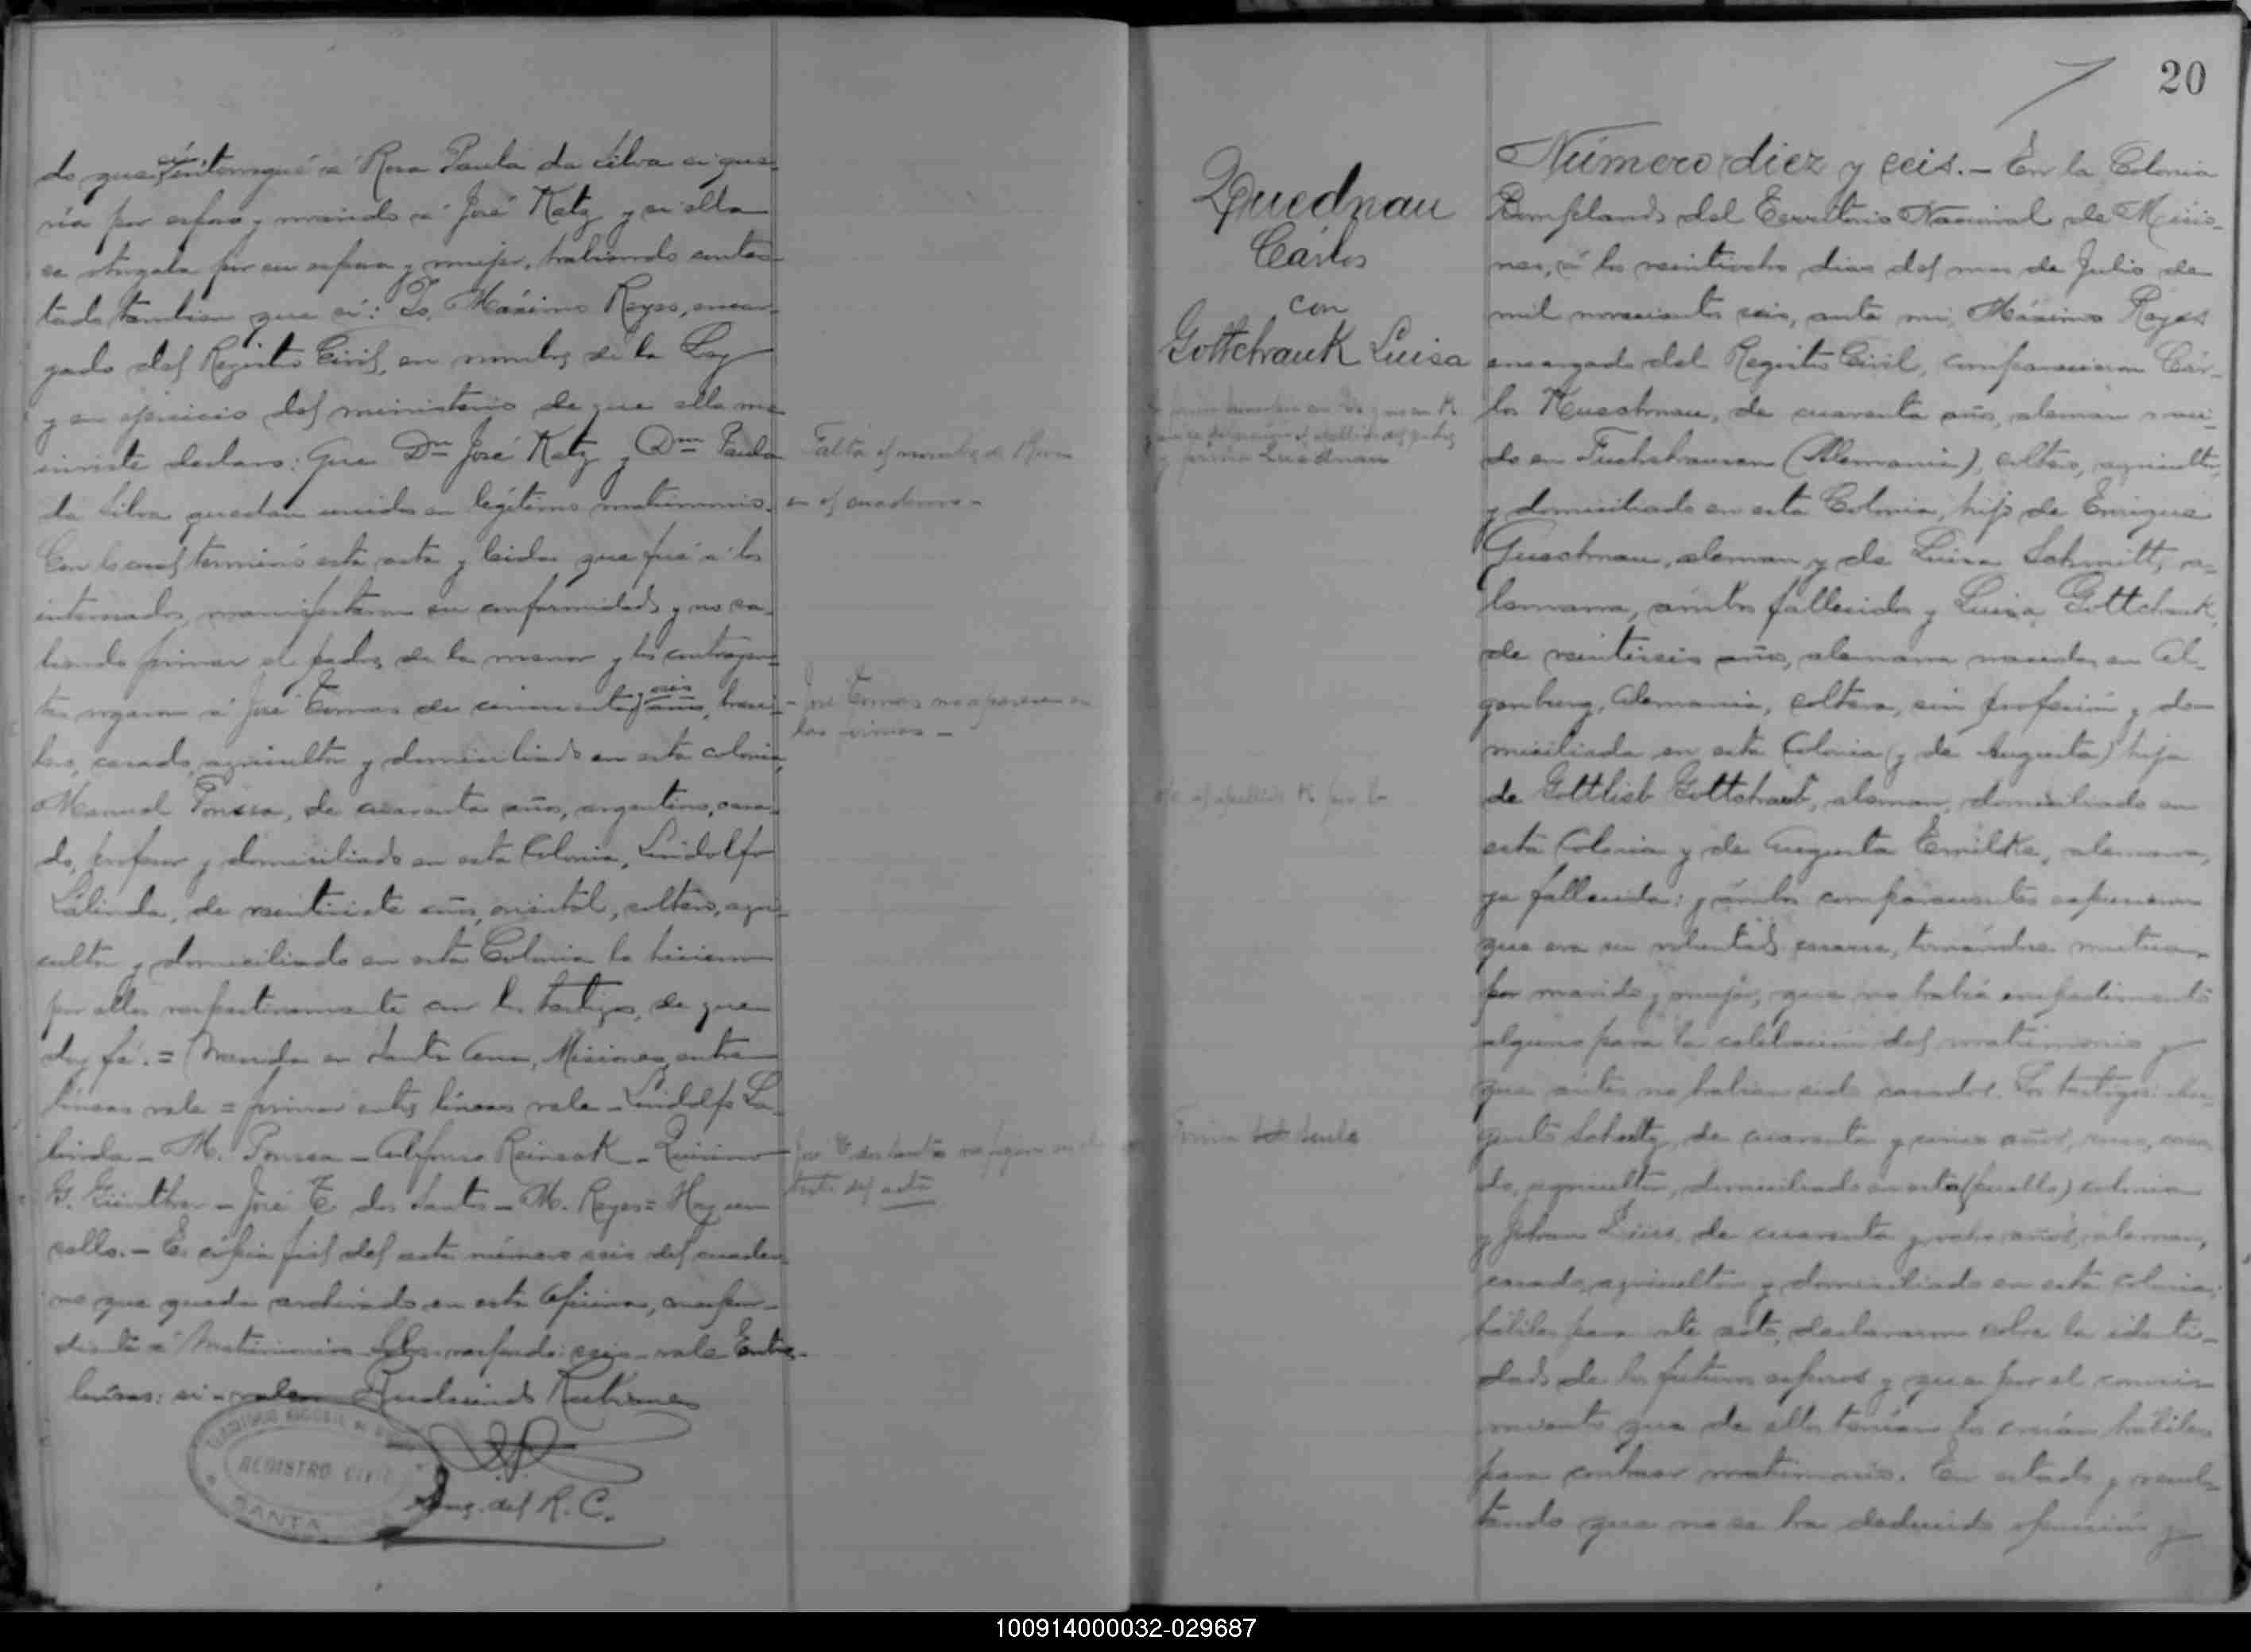 do que interrogué a Rosa Paula da Silva si que-
si,
ría por esposo y marido a José Katz y si ella
se otorgaba por su esposa y mujer, habiendo contes-
tado tambien que sí: Yo, Máximo Reyes, encar-
gado del Registro Civil, en nombre de la Ley
y en ejercicio del ministerio de que ella me
inviste declaro: Que Dn José Katz y Dna Paula
da Silva quedan unidos en legítimo matrimonio.
Con lo cual terminó esta acta y leida que fué a los
interesados, manifestaron su conformidad y no sa-
biendo firmar el padre de la menor y los contrayen-
tes rogaron a José Tomas de cincuenta y seis años, brasi-
lero, casado, agricultor y domiciliado en esta colonia,
Manuel Fonseca, de cuarenta años, argentino, casa-
do, profesor y domiciliado en esta Colonia, Lindolfo
Lalinda, de veintisiete años, oriental, soltero, agri-
cultor y domiciliado en esta Colonia lo hicieron
por ellos respectivamente con los testigos, de que
doy fé. = Nacida en Santa Ana, Misiones, entre
líneas vale = firmar entre líneas vale - Lindolfo La-
linda - M. Fonseca - Alfonso - Quirino
G. Günther - José T. dos Santos - M. Reyes = Hay un
sello. - Es cópia fiel del acta número seis del cuader-
no que queda archivado en esta Oficina, correspon-
diente a Matrimonios. raspado: seis - vale Entre-
líneas: si - valen
Enc. del R. C.
REGISTRO CIVIL
SANTA
Falta el nombre de Rosa
en el cuaderno -
- José Tomas no aparece en
las firmas -
José T. dos Santos no figura en el
texto del acta
20
Quednau
Cárlos
con
Gottchrauk Luisa
y firma Quednau
el apellido K por b
Firma
Número diez y seis. - En la Colonia
Bompland del Territorio Nacional de Misio-
nes, a los veintiocho dias del mes de Julio de
mil novecientos seis, ante mi, Máximo Reyes
encargado del Registro Civil, comparecieron Cár-
los Kueschnau, de cuarenta años, aleman naci-
do en Fuchshausen (Alemania), soltero, agricultor,
y domiciliado en esta Colonia, hijo de Enrique
Gueschnau, aleman y de Luisa Schmitt, a-
lemana, ámbos fallecidos y Luisa Gottchrauk,
de veintiseis años, alemana nacida en Al-
genburg, Alemania, soltera, sin profesión y do-
miciliada en esta Colonia (y de Augusta) hija
de Gottlieb Gottchraub, aleman, domiciliado en
esta Colonia y de Augusta Emilke, alemana,
ya fallecida: y ámbos comparecientes expusieron
que era su voluntad casarse, tomándose mutuam.
por marido y mujer, que no había impedimento
alguno para la celebración del matrimonio y
que antes no habian sido casados. Los testigos: Au-
gusto Schultz, de cuarenta y cinco años, ruso, casa-
do, agricultor, domiciliado en esta (pueblo) colonia
y Johann, de cuarenta y ocho años, aleman,
casado, agricultor y domiciliado en esta colonia;
hábiles para este acto, declararon sobre la identi-
dad de los futuros esposos y que por el conoci-
miento que de ellos tenían los creían hábiles
para contraer matrimonio. En estado y resul-
tando que no se ha deducido oposición y
100914000032-029687